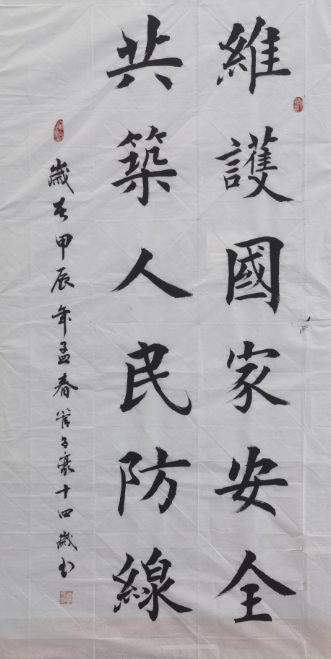 維護國家安全
共築人民防線
歲在甲辰年孟春管子豪十四歲書